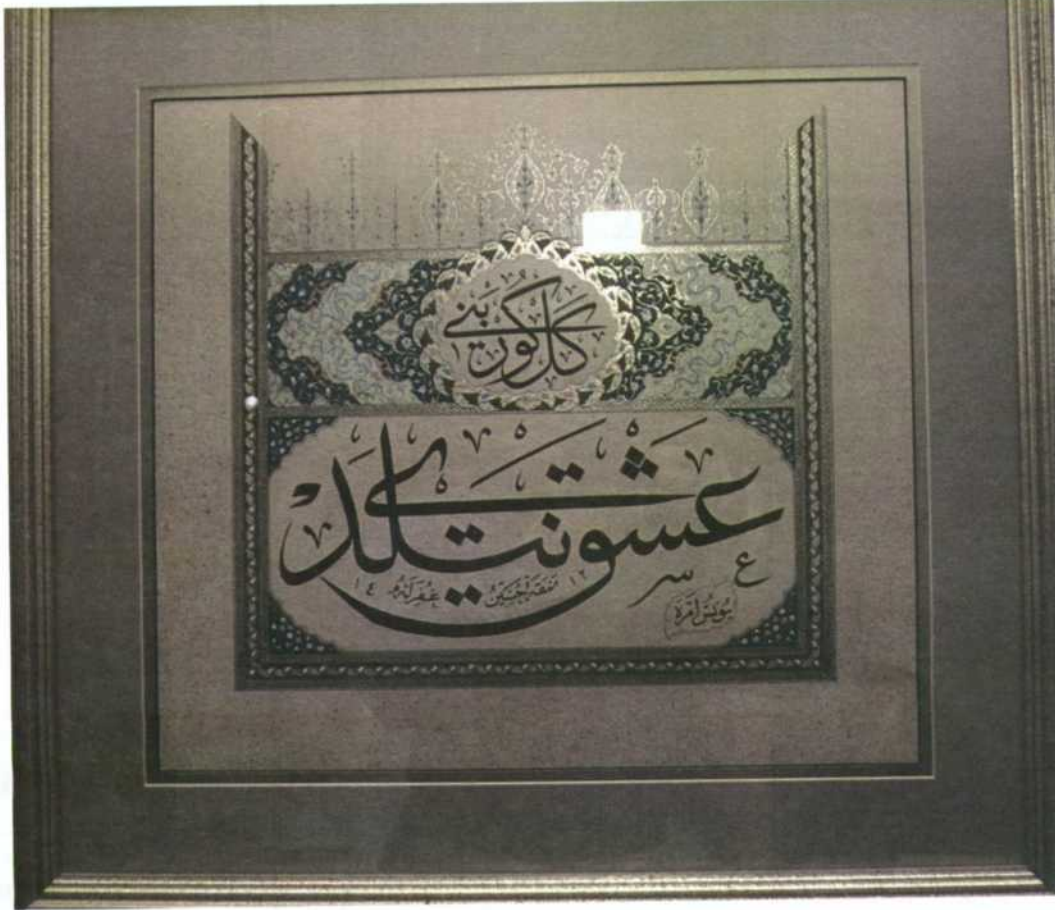 كل كور بنى
عشق نيلدى
يونس امره